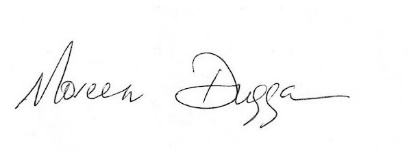 Moreen Dugga